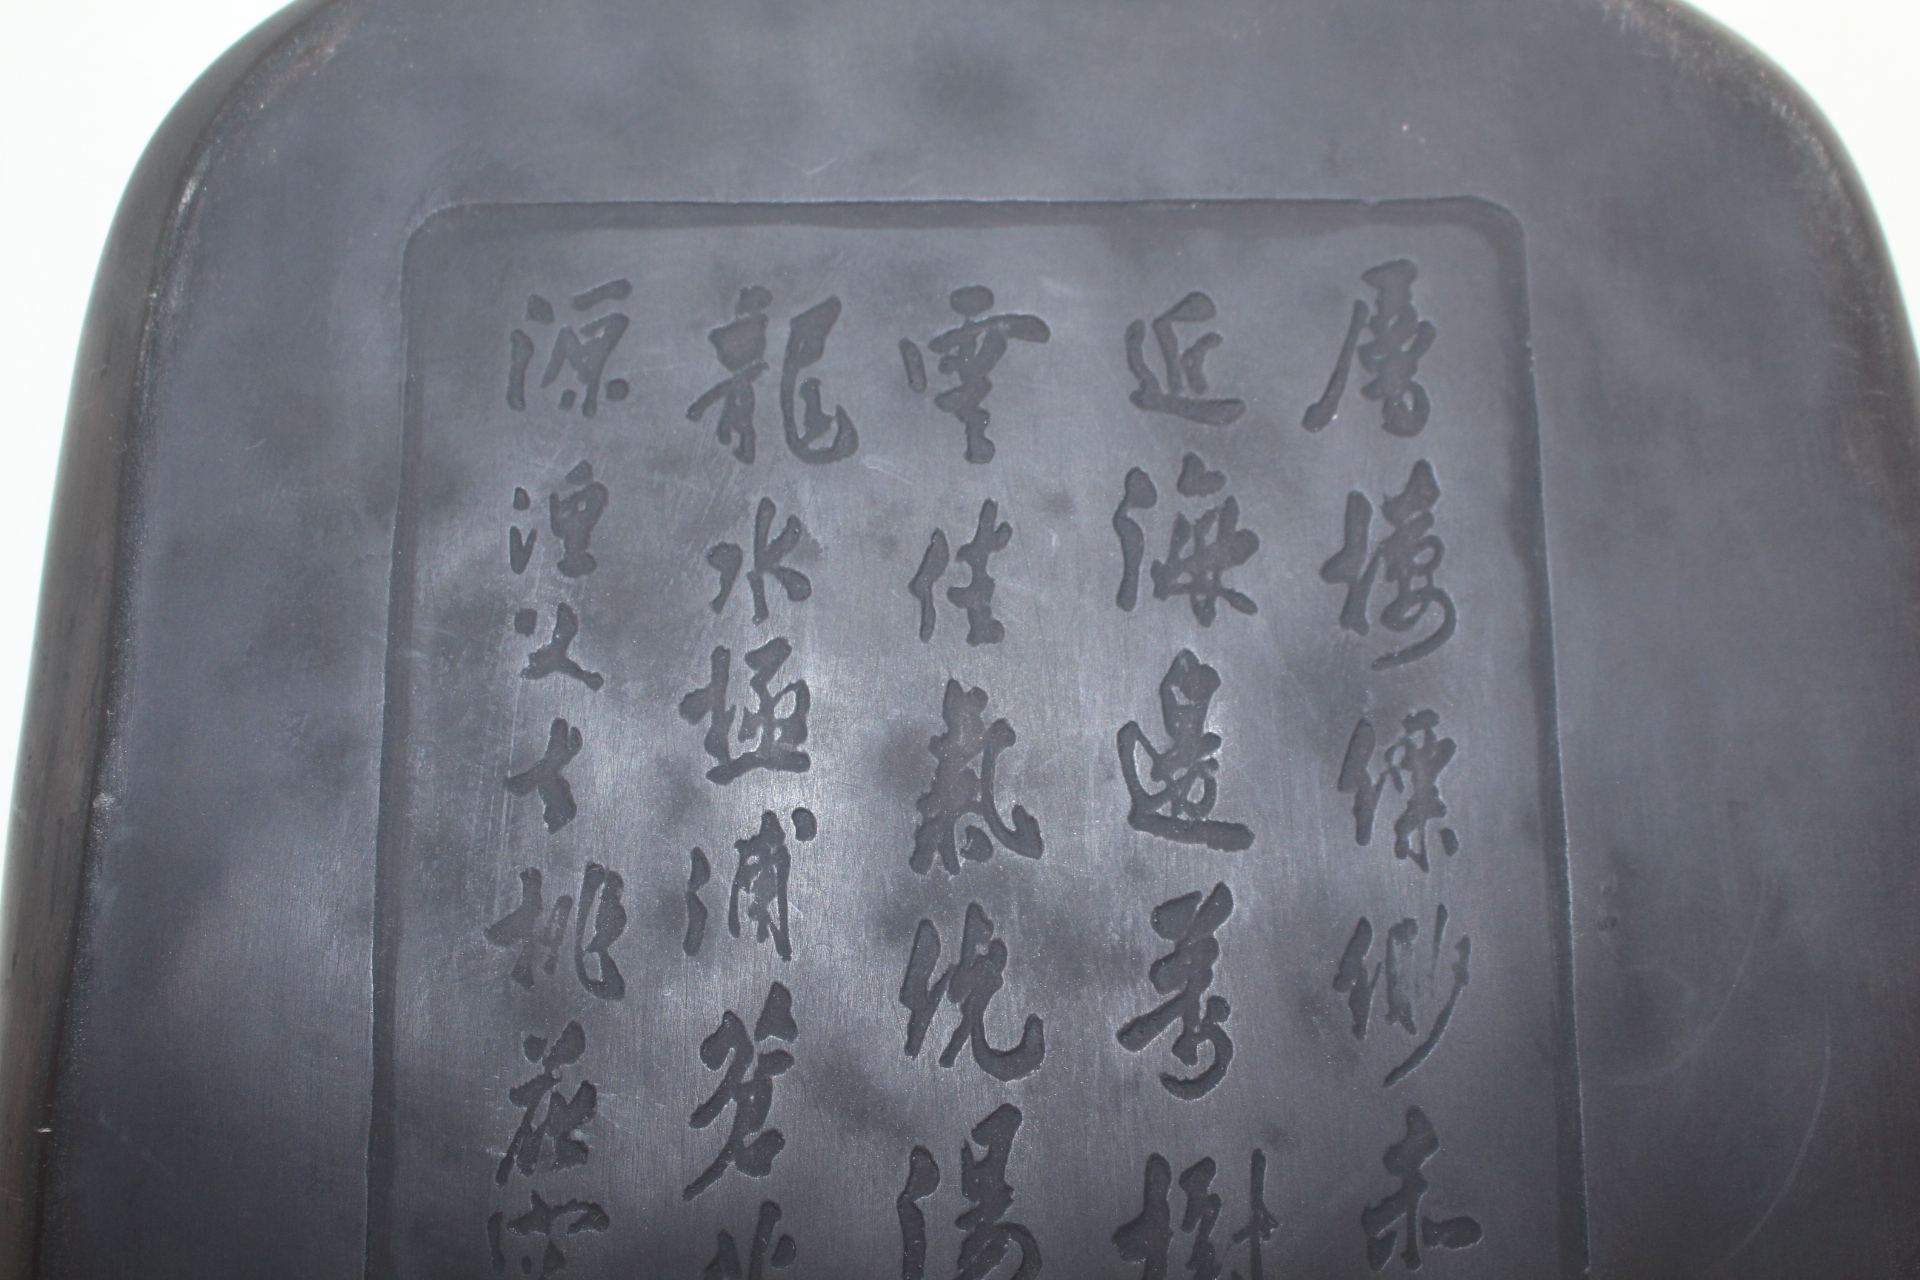 層樓縹緲赤
近海邊萬樹
雲佳氣繞湯
龍水極浦蒼
源漁父去桃花